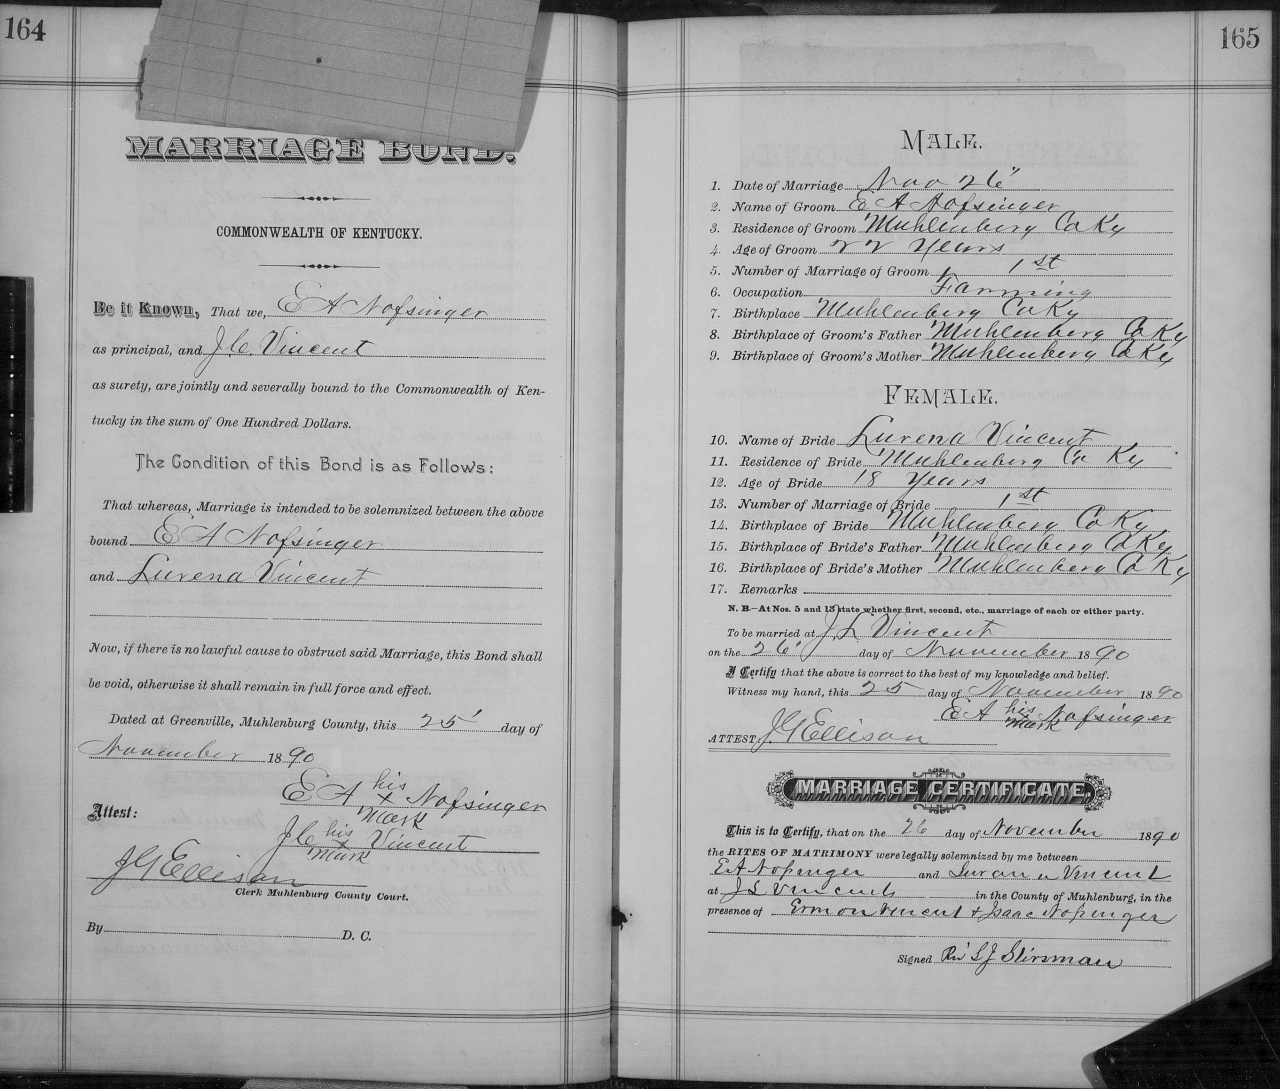 164
MARRIAGE BOND.
COMMONWEALTH OF KENTUCKY.
Be it Known, That we, E A Nofsinger
as principal, and J C Vincent
as surety, are jointly and severally bound to the Commonwealth of Ken-
tucky in the sum of One Hundred Dollars.
The Condition of this Bond is as Follows:
That whereas, Marriage is intended to be solemnized between the above
bound E A Nofsinger
and Lurena Vincent
Now, if there is no lawful cause to obstruct said Marriage, this Bond shall
be void, otherwise it shall remain in full force and effect.
Dated at Greenville, Muhlenburg County, this 25' day of
November 1890
E A his x mark Nofsinger
Attest:
J C his x mark Vincent
J G Ellison
Clerk Muhlenburg County Court.
By D. C.
165
MALE.
1. Date of Marriage Nov 26"
2. Name of Groom E A Nofsinger
3. Residence of Groom Muhlenberg Co Ky
4. Age of Groom 22 Years
5. Number of Marriage of Groom 1st
6. Occupation Farming
7. Birthplace Muhlenberg Co Ky
8. Birthplace of Groom's Father Muhlenberg Co Ky
9. Birthplace of Groom's Mother Muhlenberg Co Ky
FEMALE.
10. Name of Bride Lurena Vincent
11. Residence of Bride Muhlenberg Co Ky
12. Age of Bride 18 Years
13. Number of Marriage of Bride 1st
14. Birthplace of Bride Muhlenberg Co Ky
15. Birthplace of Bride's Father Muhlenberg Co Ky
16. Birthplace of Bride's Mother Muhlenberg Co Ky
17. Remarks
N. B.—At Nos. 5 and 13 state whether first, second, etc., marriage of each or either party.
To be married at J L Vincent
on the 26' day of November 1890
I Certify that the above is correct to the best of my knowledge and belief.
Witness my hand, this 25 day of November 1890
E A his mark Nofsinger
ATTEST: J G Ellison
MARRIAGE CERTIFICATE.
This is to Certify, that on the 26 day of November 1890
the RITES OF MATRIMONY were legally solemnized by me between
E A Nofsinger and Lurana Vincent
at J L Vincents in the County of Muhlenburg, in the
presence of Ermon Vincent & Isaac Nofsinger
Signed Rev L J Stirsman